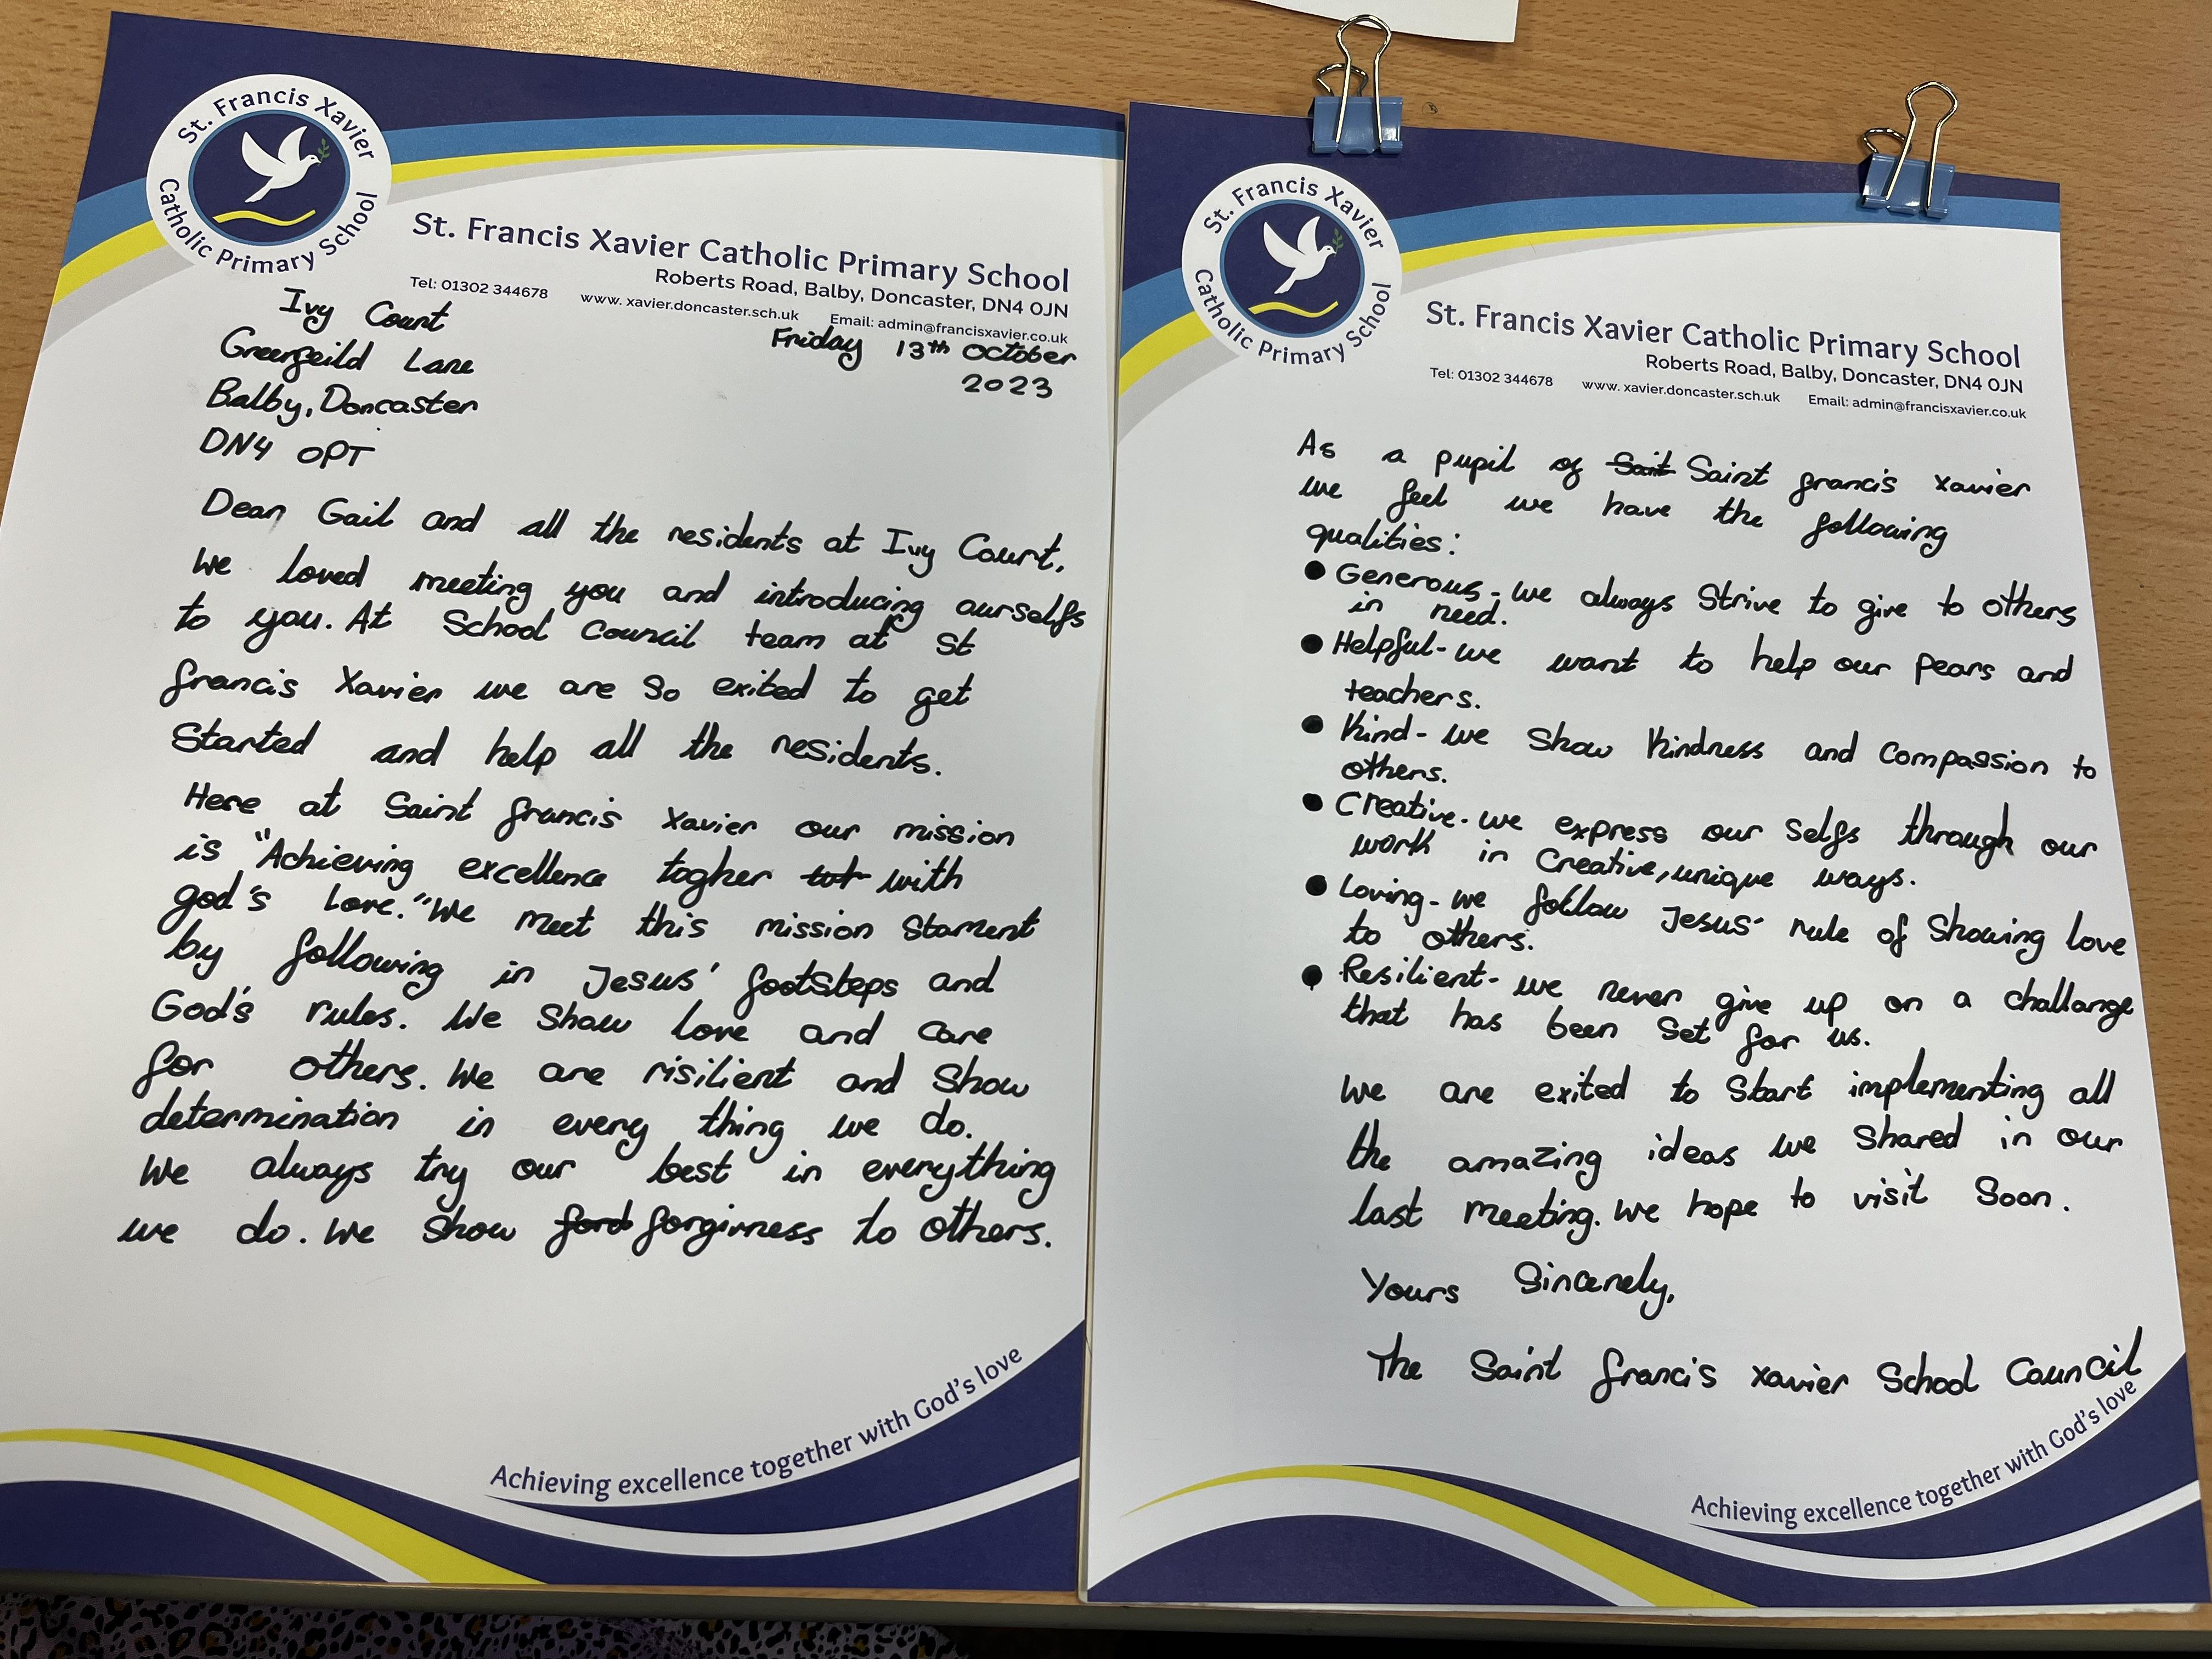 St. Francis Xavier
Catholic Primary School
St. Francis Xavier Catholic Primary School
Roberts Road, Balby, Doncaster, DN4 0JN
Tel: 01302 344678 www. xavier.doncaster.sch.uk Email: admin@francisxavier.co.uk
Ivy Court
Greenfeild Lane
Balby, Doncaster
DN4 OPT
Friday 13th October
2023
Dear Gail and all the residents at Ivy Court,
We loved meeting you and introducing ourselfs
to you. At School Council team at St
francis Xavier we are so exited to get
Started and help all the residents.
Here at Saint francis Xavier our mission
is "Achieving excellence togher tot with
god's love." We meet this mission Stament
by following in Jesus' footsteps and
God's rules. We Show love and care
for others. We are risilient and Show
determination in every thing we do.
We always try our best in everything
we do. We show ford forgivness to others.
Achieving excellence together with God's love
St. Francis Xavier
Catholic Primary School
St. Francis Xavier Catholic Primary School
Roberts Road, Balby, Doncaster, DN4 0JN
Tel: 01302 344678 www. xavier.doncaster.sch.uk Email: admin@francisxavier.co.uk
As a pupil of Sait Saint francis Xavier
we feel we have the following
qualities:
● Generous - we always Strive to give to others
in need.
● Helpful - we want to help our pears and
teachers.
● Kind - we Show Kindness and Compassion to
others.
● Creative - we express our Selfs through our
work in Creative, unique ways.
● Loving - we follow Jesus' rule of Showing love
to others.
● Resilient - we never give up on a challange
that has been Set for us.
We are exited to Start implementing all
the amazing ideas we Shared in our
last meeting. We hope to visit Soon.
Yours Sincerely,
The Saint francis Xavier School Council
Achieving excellence together with God's love